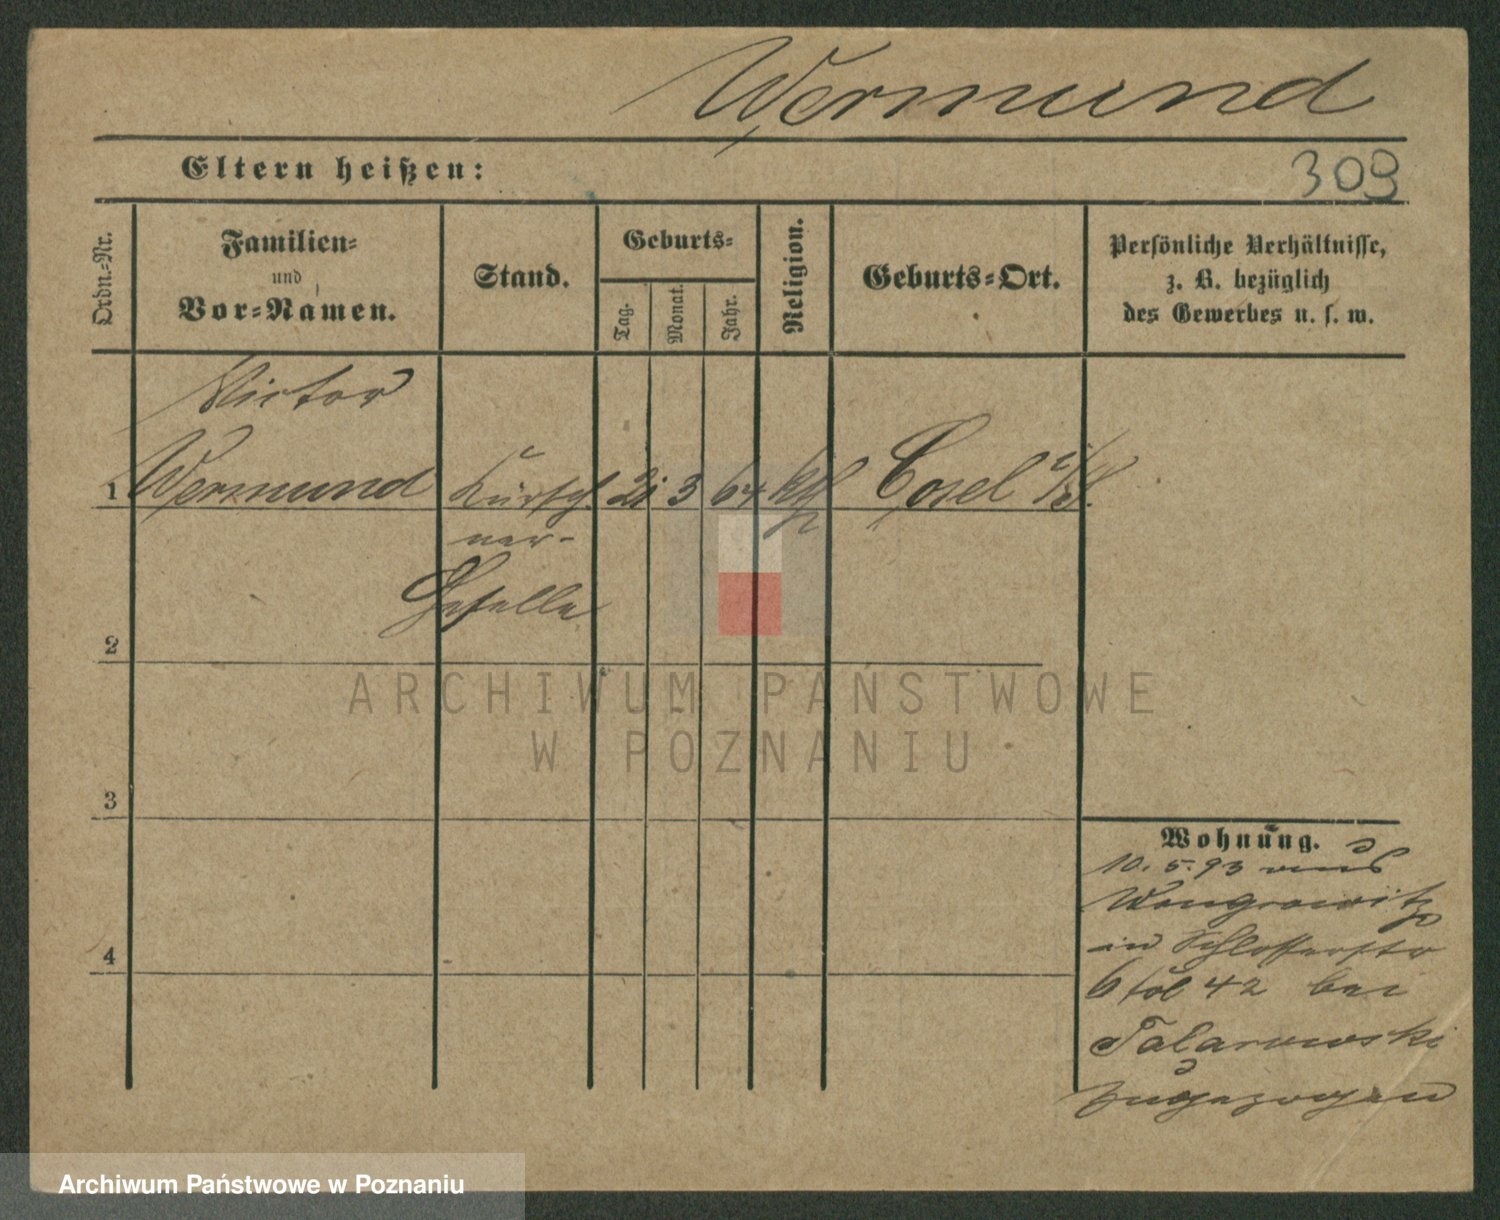 Wermund
Eltern heißen:
309
Ordn.-Nr.
Familien-
und
Vor-Namen.
Stand.
Geburts-
Tag.
Monat.
Jahr.
Religion.
Geburts-Ort.
Persönliche Verhältnisse,
z. B. bezüglich
des Gewerbes u. s. w.
Victor
1 Wermund Kürsch- 21 3 64 kth Cosel o/S.
ner-
Geselle
2
3
4
Wohnung.
10. 5. 93 aus
Wongrowitz
in Schlosserstr
6 fol 42 bei
Talarowski
zugezogen
ARCHIWUM PAŃSTWOWE
W POZNANIU
Archiwum Państwowe w Poznaniu